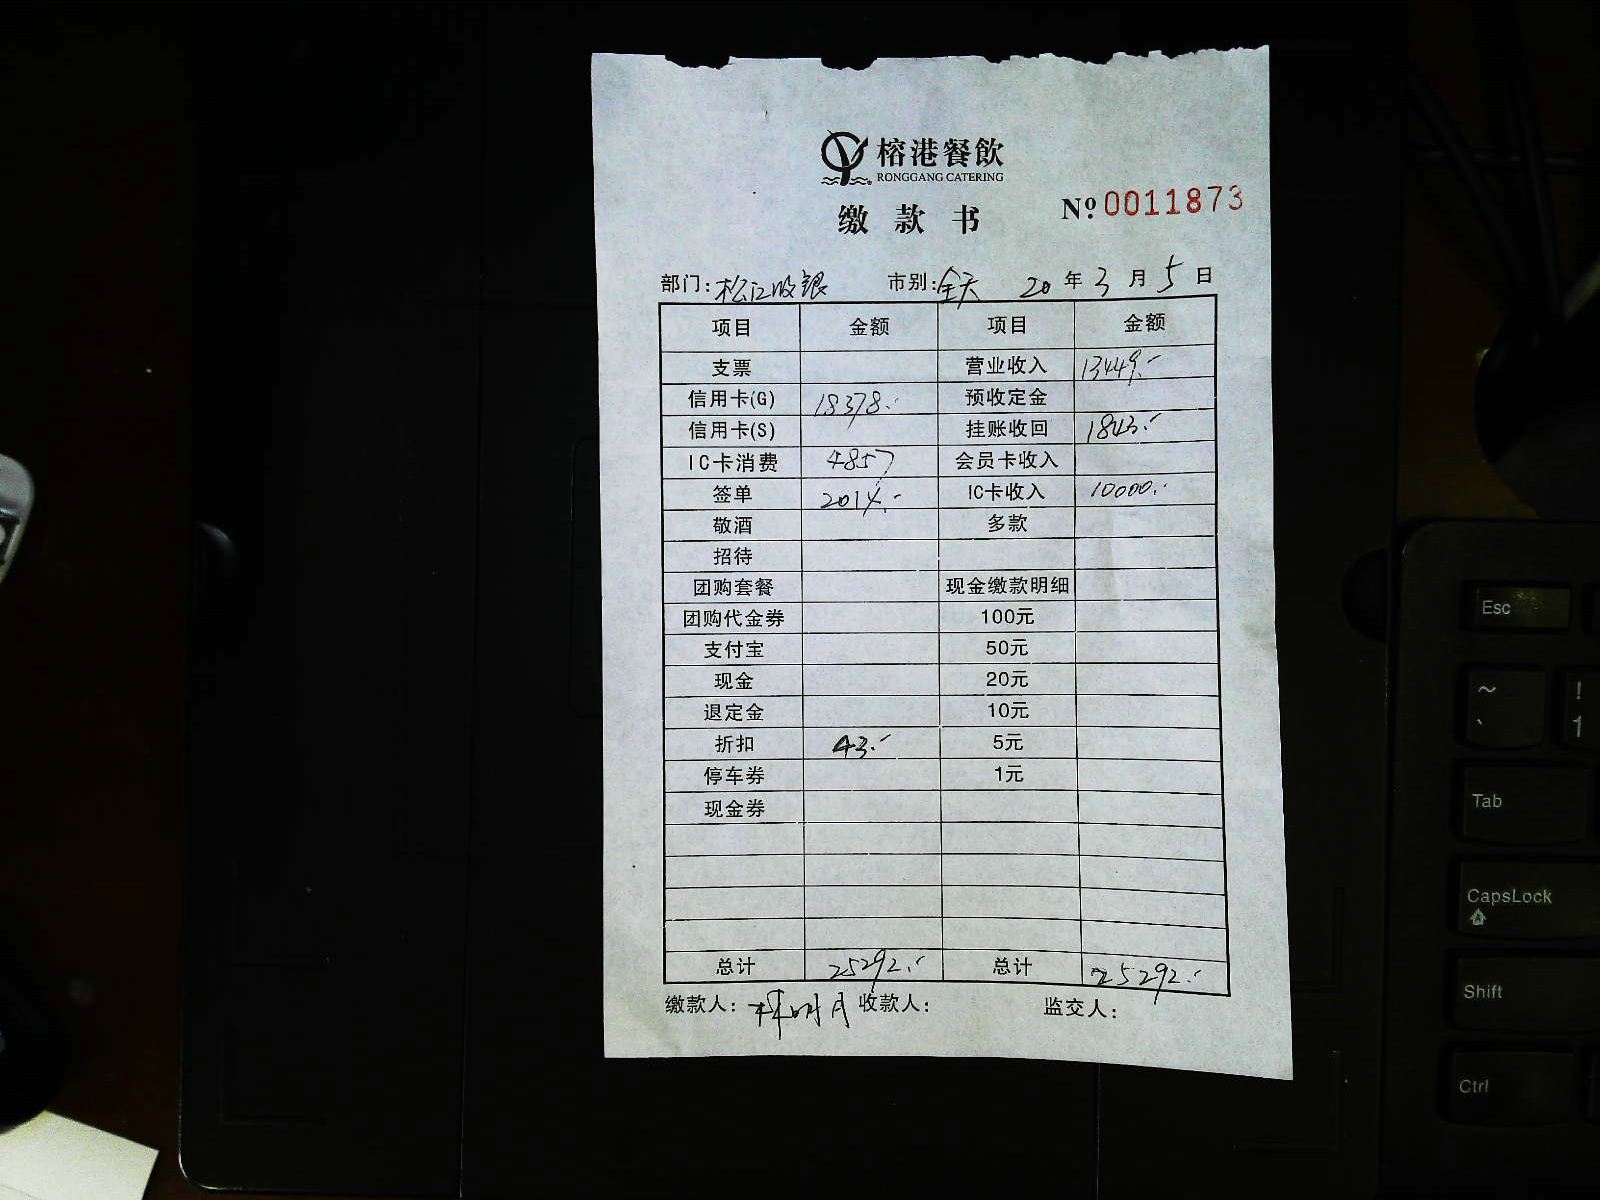 榕港餐飲
RONGGANG CATERING
缴款书 Nº 0011873
部门: 松江收银 市别: 全天 20 年 3 月 5 日
项目 金额 项目 金额
支票 营业收入 13449.-
信用卡(G) 18378.- 预收定金
信用卡(S) 挂账收回 1843.-
IC卡消费 4857 会员卡收入
签单 2014.- IC卡收入 10000.-
敬酒 多款
招待
团购套餐 现金缴款明细
团购代金券 100元
支付宝 50元
现金 20元
退定金 10元
折扣 43.- 5元
停车券 1元
现金券
总计 25292.- 总计 25292.-
缴款人: 明月 收款人: 监交人:
Esc
~ !
` 1
Tab
CapsLock
A
Shift
Ctrl